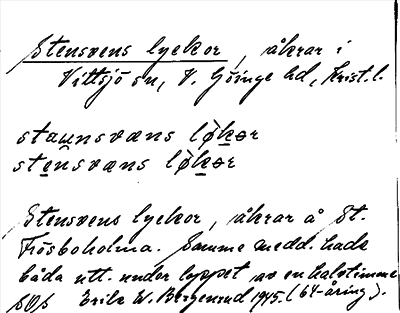 Stensvens lyckor, åkrar i
Vittsjö sn, V. Göinge hd, Krist. l.
staunsvæns løkər
stensvæns løkər
Stensvens lyckor, åkrar å St.
Frösboholma. Samme medd. hade
båda utt. under loppet av en halvtimme.
SOS Erik W. Bergenrud 1945. (64-åring).